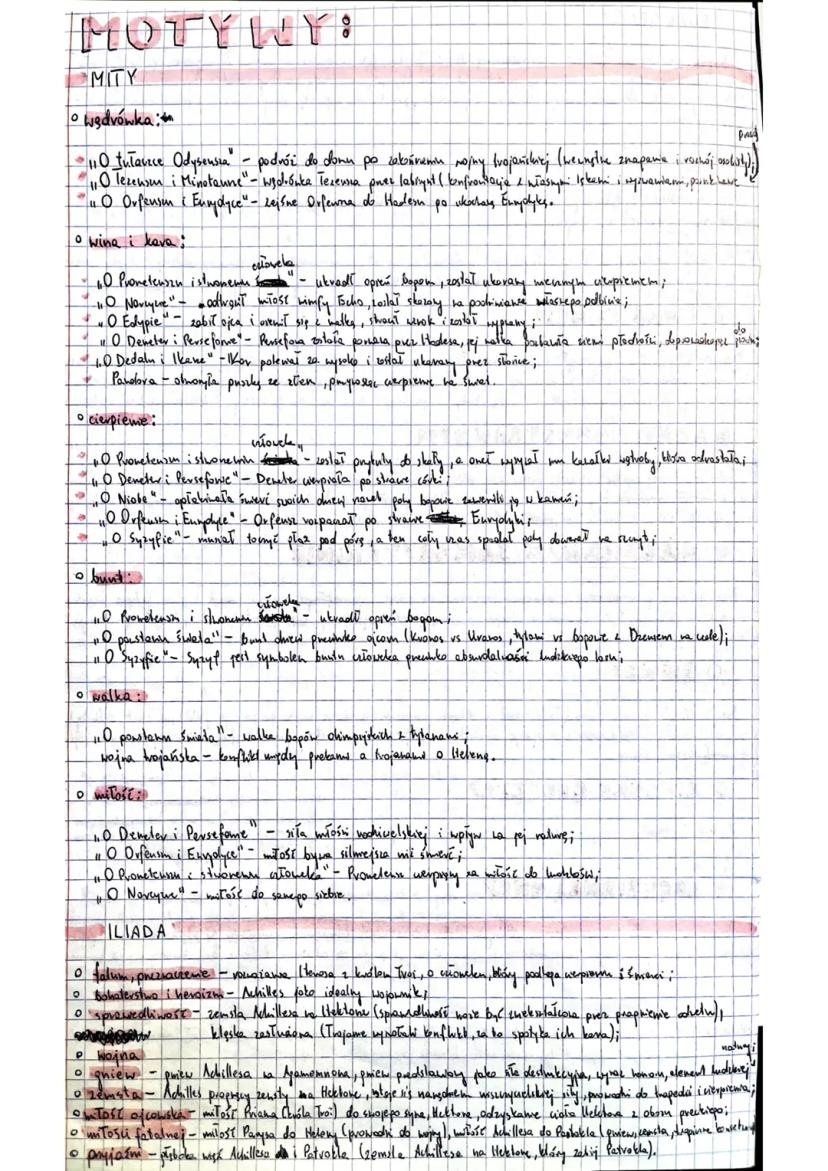 MOTYWY:
MITY
wędrówka:
pracą
"O tułaczce Odyseusza" - podróż do domu po zakończeniu wojny trojańskiej (wewnętrzne zmagania i rozwój osobisty);
"O Tezeuszu i Minotaurze" - wędrówka Tezeusza przez labirynt (konfrontacja z własnymi lękami i wyzwaniami,
"O Orfeuszu i Eurydyce" - zejście Orfeusza do Hadesu po ukochaną Eurydykę.
wina i kara:
człowieka
"O Prometeuszu i stworzeniu " - ukradł ogień bogom, został ukarany wiecznym cierpieniem;
"O Narcyzie" - odtrącił miłość nimfy Echo, został skazany na podziwianie własnego odbicia;
"O Edypie" - zabił ojca i ożenił się z matką, stracił wzrok i został wygnany;
"O Demeter i Persefonie" - Persefona została porwana przez Hadesa, jej matka pozbawiła ziemi płodności, doprowadzając do głodu;
"O Dedalu i Ikarze" - Ikar poleciał za wysoko i został ukarany przez słońce;
Pandora - otworzyła puszkę ze złem, przynosząc cierpienie na świat.
cierpienie:
człowieka
"O Prometeuszu i stworzeniu - został przykuty do skały, a orzeł wyrywał mu kawałki wątroby, która odrastała;
"O Demeter i Persefonie" - Demeter cierpiała po stracie córki;
"O Niobe" - opłakiwała śmierć swoich dzieci nawet gdy bogowie zamienili ją w kamień;
"O Orfeuszu i Eurydyce" - Orfeusz rozpaczał po stracie Eurydyki;
"O Syzyfie" - musiał toczyć głaz pod górę, a ten cały czas spadał gdy docierał na szczyt;
bunt:
człowieka
"O Prometeuszu i stworzeniu " - ukradł ogień bogom;
"O powstaniu świata" - bunt dzieci przeciwko ojcom (Kronos vs Uranos, tytani vs bogowie z Dzeusem na czele);
"O Syzyfie" - Syzyf jest symbolem buntu człowieka przeciwko absurdalności ludzkiego losu;
walka:
"O powstaniu świata" - walka bogów olimpijskich z tytanami;
wojna trojańska - konflikt między grekami a trojanami o Helenę.
miłość:
"O Demeter i Persefonie" - siła miłości rodzicielskiej i wpływ na jej naturę;
"O Orfeuszu i Eurydyce" - miłość bywa silniejsza niż śmierć;
"O Prometeuszu i stworzeniu człowieka" - Prometeusz cierpiący za miłość do ludzkości;
"O Narcyzie" - miłość do samego siebie.
ILIADA
fatum, przeznaczenie - rozmowa z królem Troi, o człowieku, który podlega cierpieniu i śmierci;
bohaterstwo i heroizm - Achilles jako idealny wojownik;
sprawiedliwość - zemsta Achillesa na Hektorze (sprawiedliwość może być zniekształcona przez pragnienie odwetu),
klęska zasłużona (Trojanie wywołali konflikt, za to spotyka ich kara);
wojna
natury;
gniew - gniew Achillesa na Agamemnona, gniew przedstawiony jako siła destrukcyjna, wyraz honoru, element ludzkiej
zemsta - Achilles pragnący zemsty na Hektorze, staje się narzędziem niszczycielskiej siły, prowadzi do tragedii i cierpienia;
miłość ojcowska - miłość Priama (króla Troi) do swojego syna, Hektora, odzyskanie ciała Hektora z obozu greckiego;
miłości fatalnej - miłość Parysa do Heleny (prowadzi do wojny), miłość Achillesa do Patrokla (gniew, zemsta,
przyjaźni - głęboka więź Achillesa i Patrokla (zemsta Achillesa na Hektorze, który zabił Patrokla).